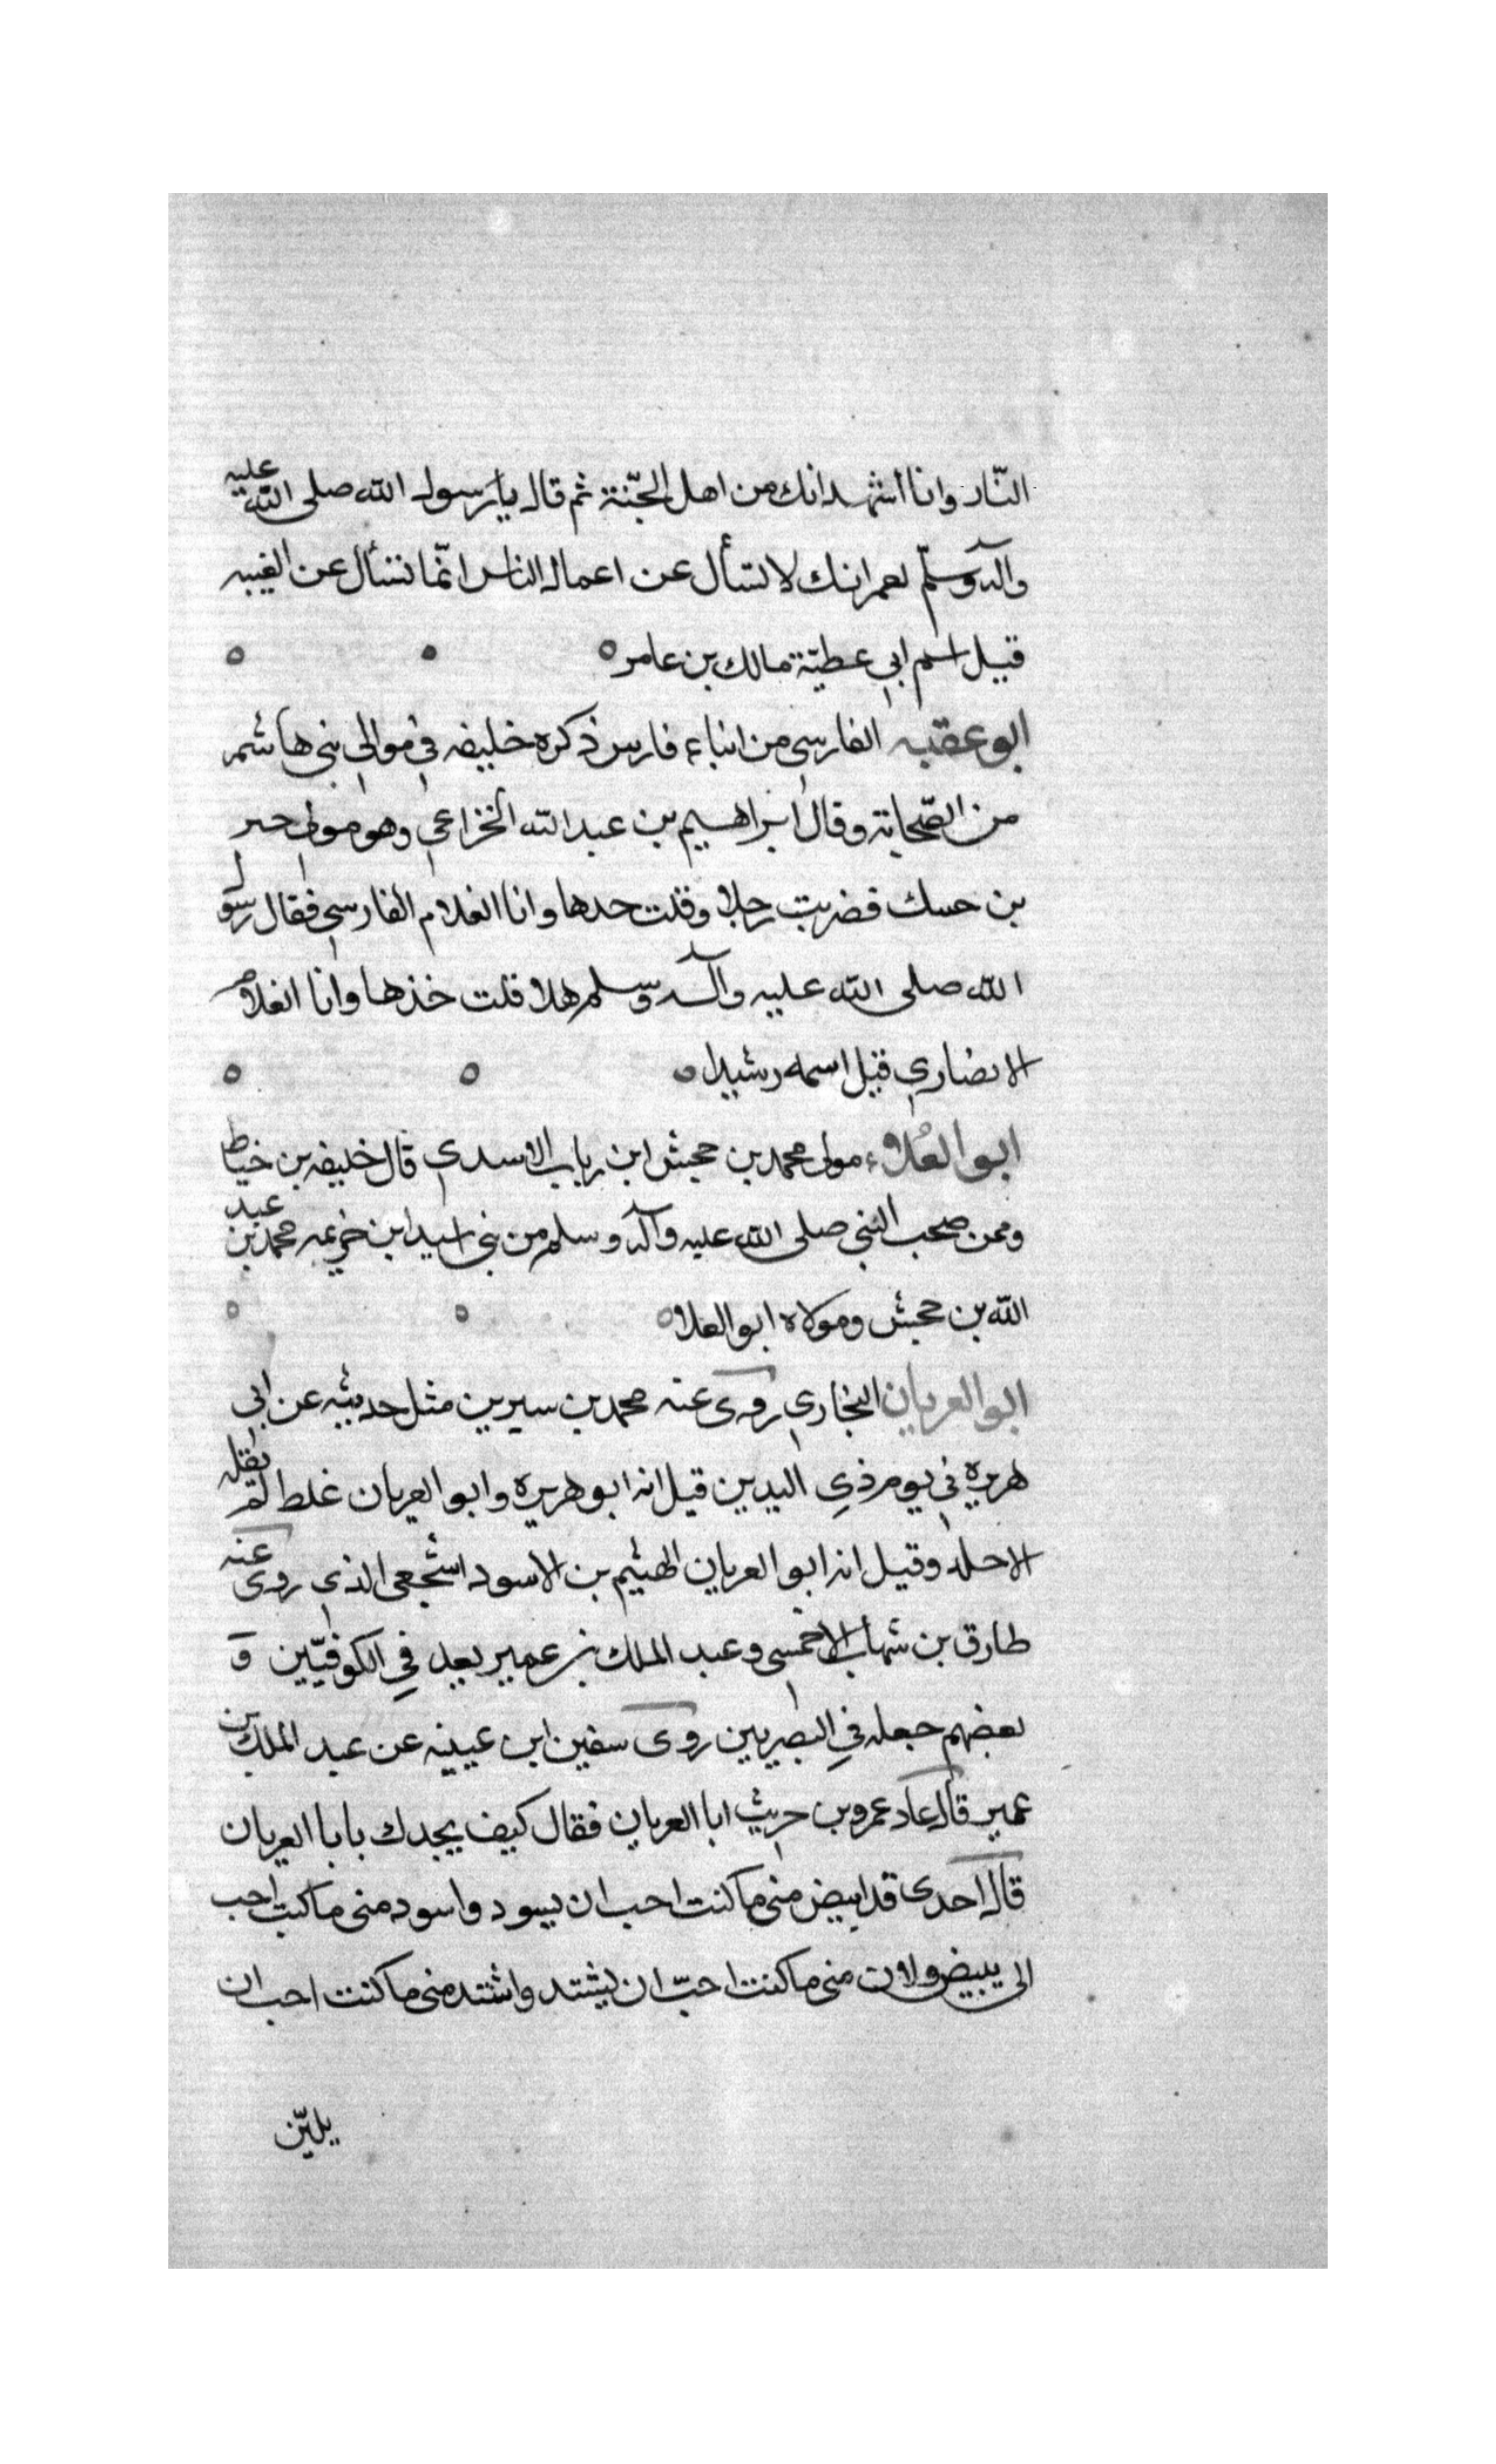 النّار وانا اشهد انك من اهل الجّنة ثم قال يا رسول الله صلى الله عليه
وآله وسلّم لعمر انك لا تسأل عن اعمال الناس انّما تسأل عن الغيبه
قيل اسم ابي عطيّة مالك بن عامر ه
ابو عقبه الفارسي من ابناء فارس ذكره خليفه في موالي بني هاشم
من الصّحابة وقال ابراهيم بن عبد الله الخزاعي وهو مولى حبر
بن حسك فضربت رجلا وقلت حدها وانا الغلام الفارسي فقال رسو
الله صلى الله عليه وآله وسلم هلا قلت خذها وانا الغلام
الانصاري قيل اسمه رشيد ه
ابو العُلاء مولى محمد بن جحش ابن رباب الاسدي قال خليفه بن خياط
وممن صحب النبي صلى الله عليه وآله وسلم من بني اسيد ابن خزيمه محمد بن عبد
الله بن جحش ومولاه ابو العلا ه
ابو العريان النجاري روى عنه محمد بن سيرين مثل حديثه عن ابي
هريره في يوم ذي اليدين قيل انه ابو هريره وابو العريان غلط لم يقله
الا حلد وقيل انه ابو العريان الهيثم بن الاسود اشجعي الذي روى عنه
طارق بن شهاب الاخمسي وعبد الملك بن عمير يعد في الكوفيّين و
بعضهم جعله في البصريين روى سفين ابن عيينه عن عبد الملك بن
عمير قال عاد عمرو بن حريث ابا العريان فقال كيف يجدك بابا العريان
قال احدى قد ابيض منى ما كنت احب ان يسود واسود منى ما كنت احب
الى يبيض ولان منى ما كنت احبّ ان يشتد واشتد منى ما كنت احب ان
يليّن